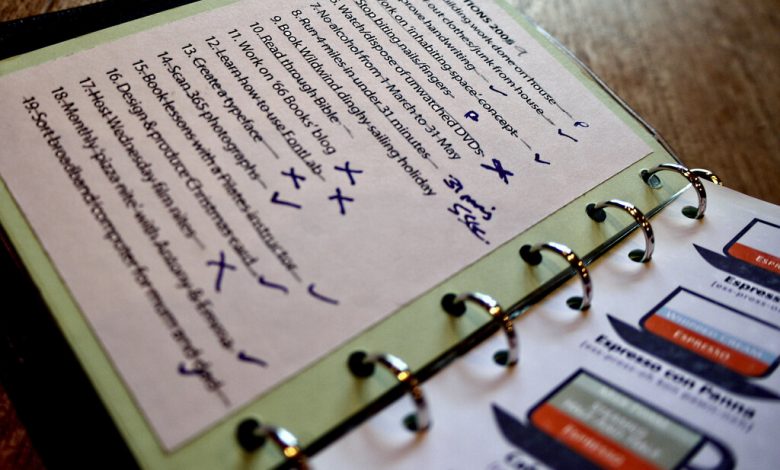 TIONS 2008
work done on house
clothes/junk from house
handwriting
on 'inhabiting space' concept
Stop biting nails/fingers
Watch/dispose of unwatched DVDs
7. No alcohol from 1 March to 31 May
8. Run 4 miles in under 31 minutes
31 mins
5 sec.
9. Book Wildwind dinghy sailing holiday
10. Read through Bible
11. Work on '66 Books' blog
12. Learn how to use FontLab
13. Create a typeface
14. Scan 365 photographs
15. Book lessons with a Pilates instructor
16. Design & produce Christmas card
17. Host Wednesday film nites
18. Monthly 'pizza nite' with Antony & Emma
19. Sort broadband/computer for mum and dad
Espress
WHIPPED CREAM
ESPRESSO
Espresso con Panna